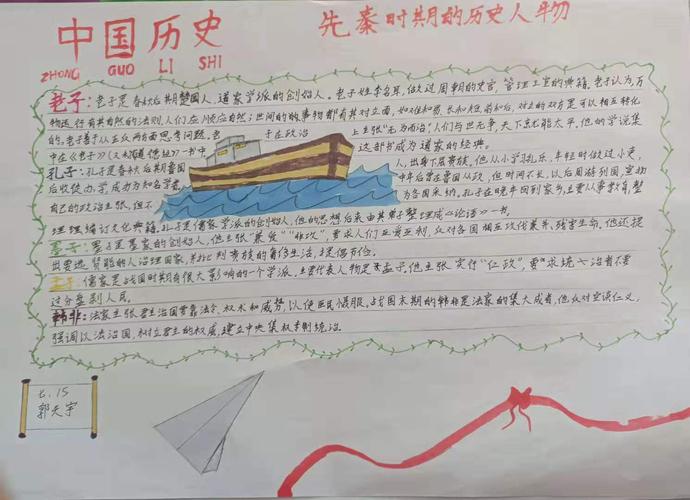 中国历史
ZHONG GUO LI SHI
先秦时期的历史人物
老子：老子是春秋后期楚国人，道家学派的创始人。老子姓李名耳，做过周朝的史官，管理王室的典籍。老子认为万
物运行有其自然的法则，人们应顺应自然；世间的事物都有其对立面，如难和易、长和短、前和后，对立的双方是可以相互转化
的。老子善于从正反两面思考问题。老子在政治上主张"无为而治"，人们与世无争，天下就能太平，他的学说集
中在《老子》（又称道德经》一书中 这部书成为道家的经典。
孔子：孔子是春秋后期鲁国人，出身下层贵族，他从小学习礼乐，年轻时做过小吏，
后收徒办学，成为为知名学者 中年后曾在鲁国从政，但时间不长，以后周游列国，宣扬
自己的政治主张，但不为各国采纳。孔子在晚年回到家乡，主要从事教育，整
理编订文化典籍。孔子是儒家学派的创始人，他的思想后来由其弟子整理成《论语》一书。
墨子：墨子是墨家的创始人，他主张"兼爱""非攻"，要求人们互爱互利，反对各国相互攻伐兼并、残害生命。他还提
出要选贤能的人治理国家，并批判贵族的奢侈生活，提倡节俭。
孟子：儒家是战国时期有很大影响的一个学派，主要代表人物是孟子，他主张实行"仁政"，要求统治者不要
过分剥削人民。
韩非：法家主张君主治国要靠法令、权术和威势，以使臣民慑服。战国末期的韩非是法家的集大成者，他反对空谈仁义，
强调以法治国，树立君主的权威，建立中央集权专制统治。
七.15
郭天宇